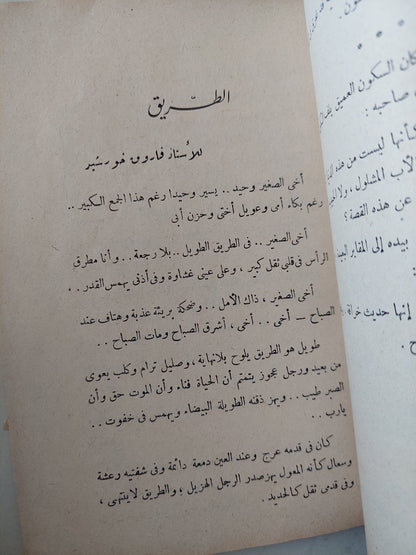 الطريق
للأستاذ فاروق خورشيد
أخى الصغير وحيد .. يسير وحيدا رغم هذا الجمع الكبير ..
رغم بكاء أمى وعويل أختى وحزن أبى
أخى الصغير .. فى الطريق الطويل .. بلا رجعة .. وأنا مطرق
الرأس فى قلبى ثقل كبير ، وعلى عينى غشاوة وفى أذنى يهمس القدر . .
أخى الصغير ، ذاك الأمل .. وضحكة بريئة عذبة وهتاف عند
الصباح — أخى . . أخى ، أشرق الصباح ومات الصباح . .
طويل هو الطريق يلوح بلانهاية ، وصليل ترام وكلب يعوى
من بعيد ورجل عجوز يتمتم أن الحياة فناء وأن الموت حق وأن
الصبر طيب . . ويهز ذقنه الطويلة البيضاء ويهمس فى خفوت . .
يارب . .
كان فى قدمه عرج وعند العين دمعة دائمة وفى شفتيه رعشة
وسعال كأنه المعول يهز صدر الرجل الهزيل ، والطريق لاينتهى ،
وفى قدمى ثقل كالحديد .
كان السكون العميق
صاحبه :
كأنها ليست من هذه
الأب المشلول .. ولا
عن هذه القصة ؟
بيده إلى المقابر البيض
إنها حديث خرافة